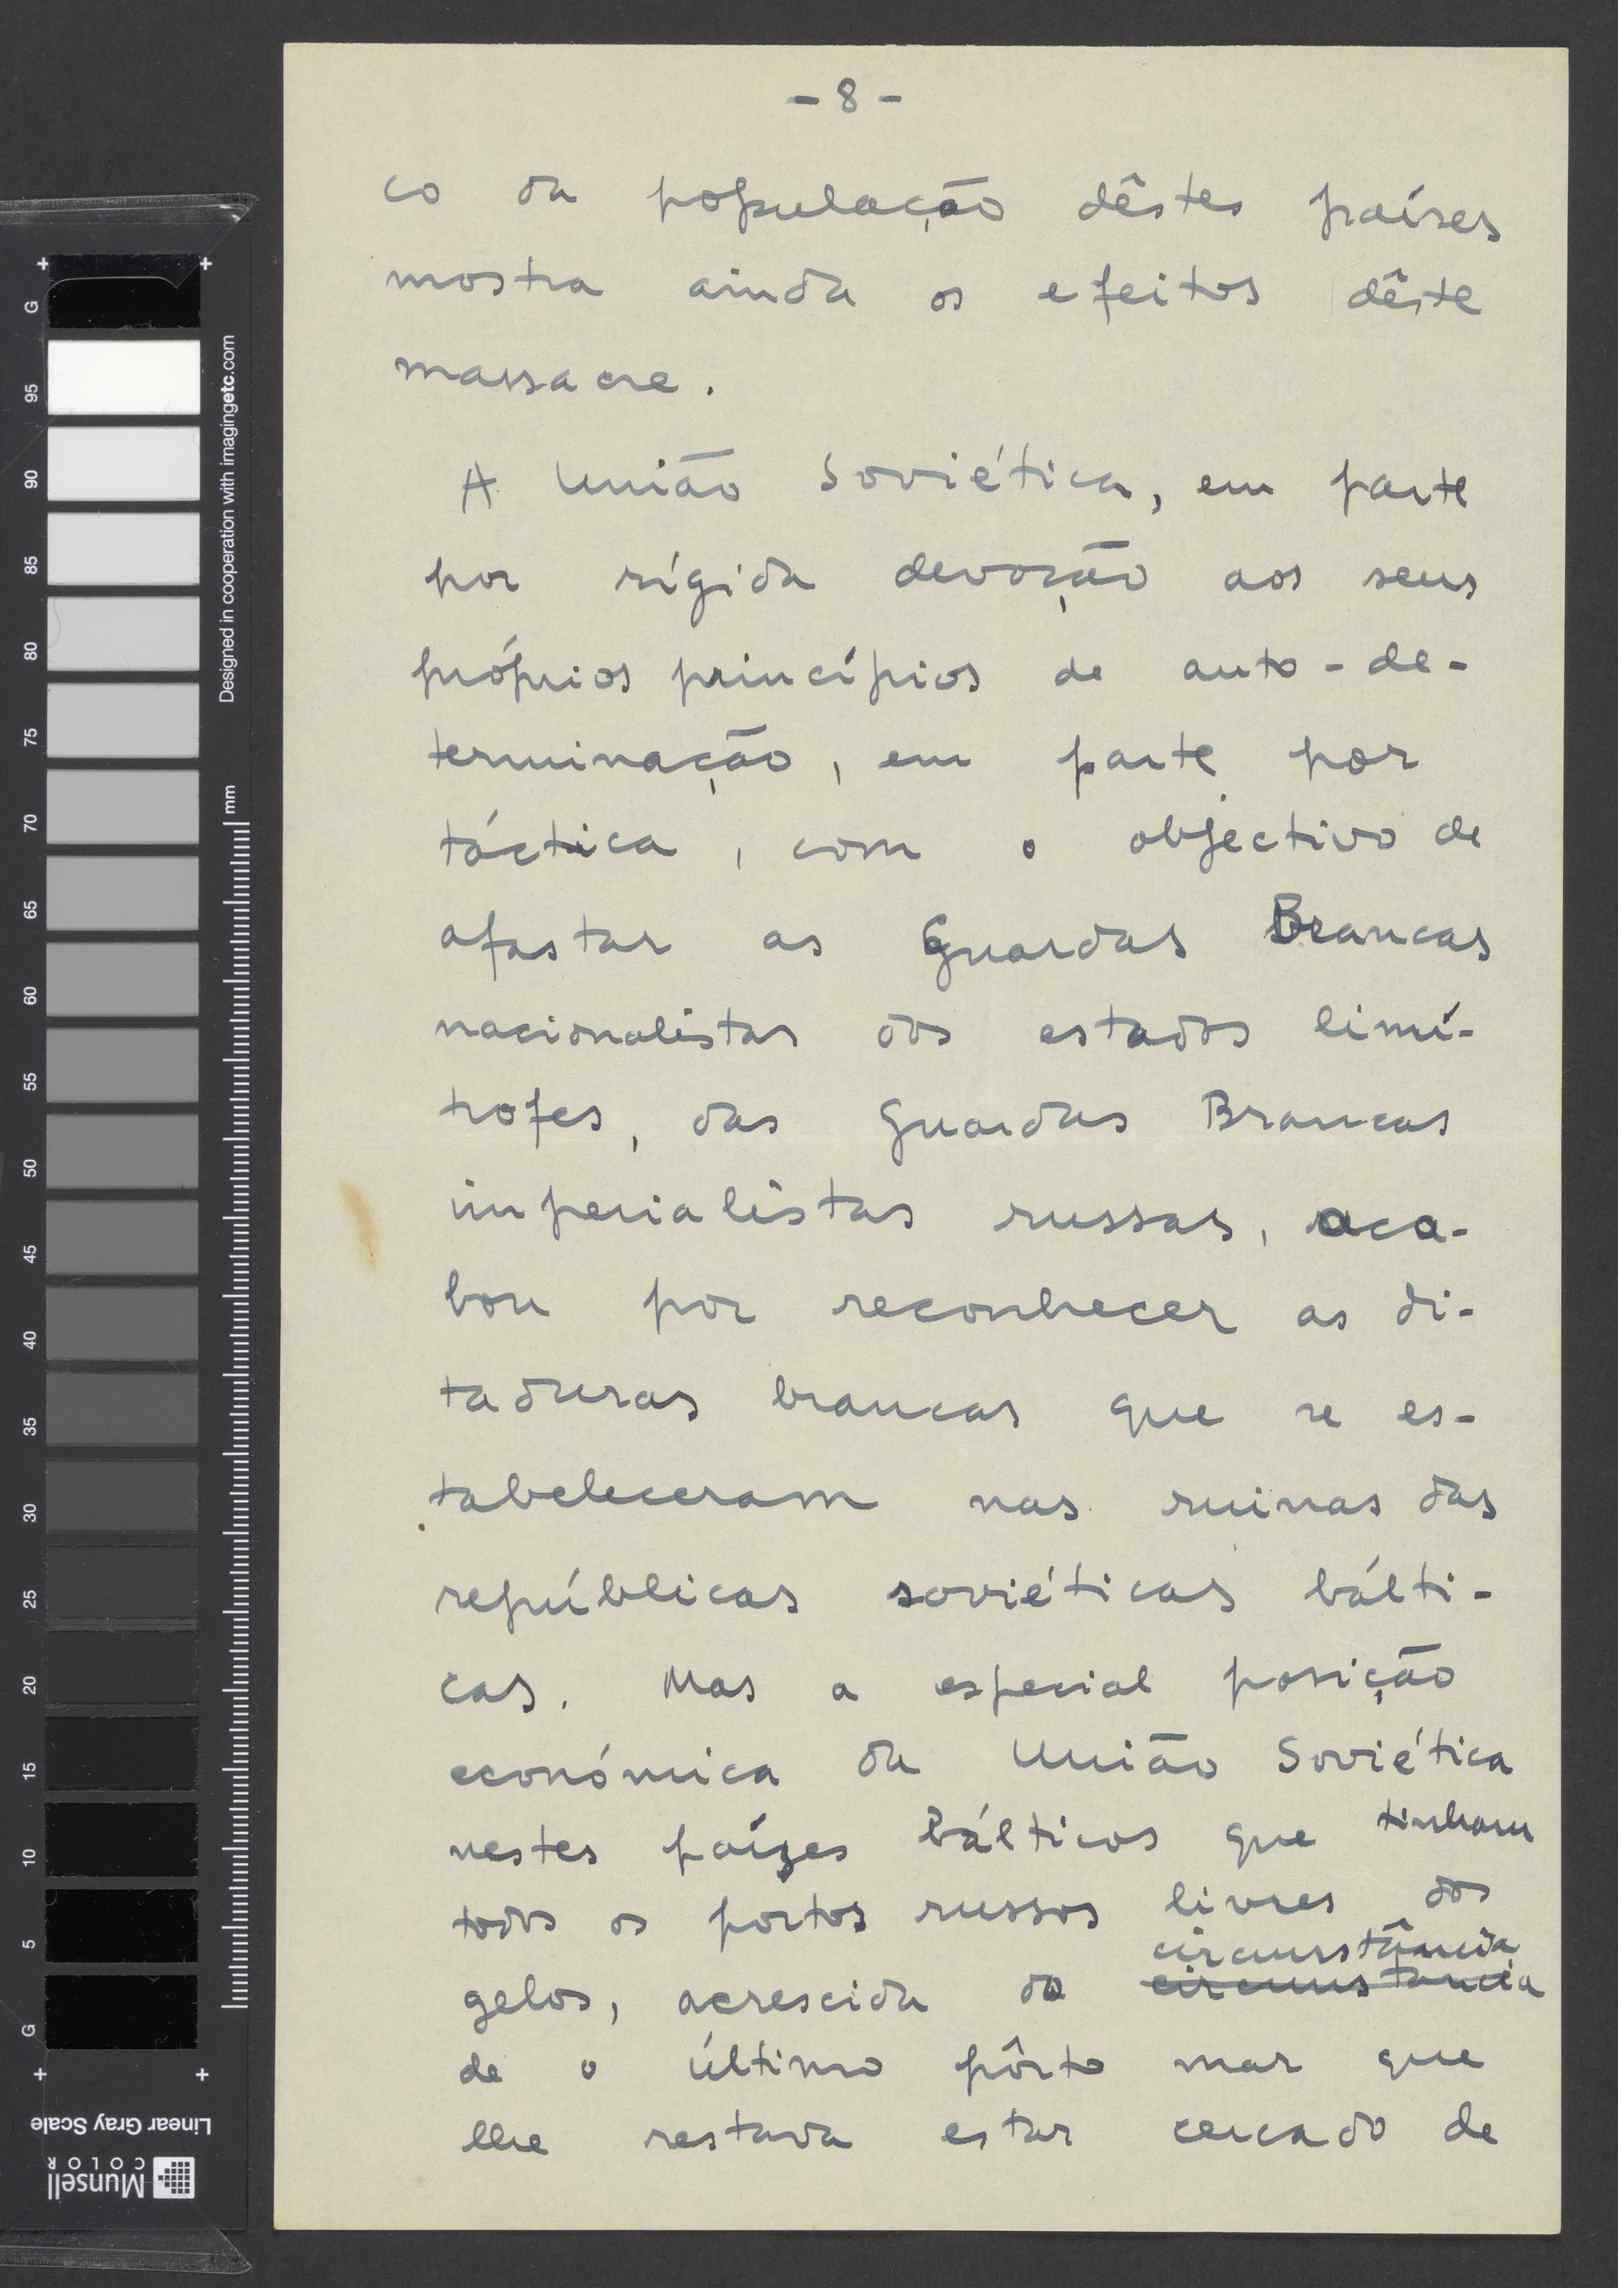 - 8 -
co da população dêstes países
mostra ainda os efeitos dêste
massacre.
A União Soviética, em parte
por rígida devoção aos seus
próprios princípios de auto-de-
terminação, em parte por
táctica, com o objectivo de
afastar as Guardas Brancas
nacionalistas dos estados limí-
trofes, das Guardas Brancas
imperialistas russas, aca-
bou por reconhecer as di-
taduras brancas que se es-
tabeleceram nas ruinas das
repúblicas soviéticas bálti-
cas. Mas a especial posição
económica da União Soviética
nestes países bálticos que tinham
todos os portos russos livres dos
circunstância
gelos, acrescida da circunstancia
de o último pôrto mar que
lhe restava estar cercado de
G
95
90
85
80
75
70
65
60
55
50
45
40
35
30
25
20
15
10
5
G
Designed in cooperation with imagingetc.com
mm
Linear Gray Scale
Munsell
COLOR